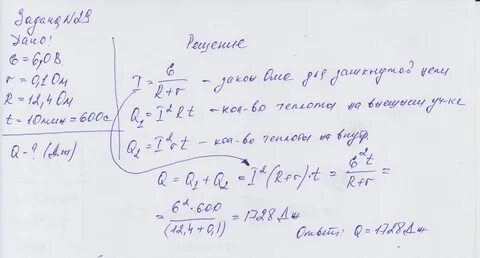 Задача №29
Дано:
Ɛ=6,0В
r=0,1Ом
R=12,4Ом
t=10мин=600с
Q-? (Дж)
Решение
I = Ɛ/(R+r) - закон Ома для замкнутой цепи
Q₁=I²Rt - кол-во теплоты на внешнем уч-ке
Q₂=I²rt - кол-во теплоты на внутр.
Q = Q₁+Q₂ = I²(R+r)·t = Ɛ²t/(R+r) =
= 6²·600/(12,4+0,1) = 1728 Дж
Ответ: Q=1728Дж